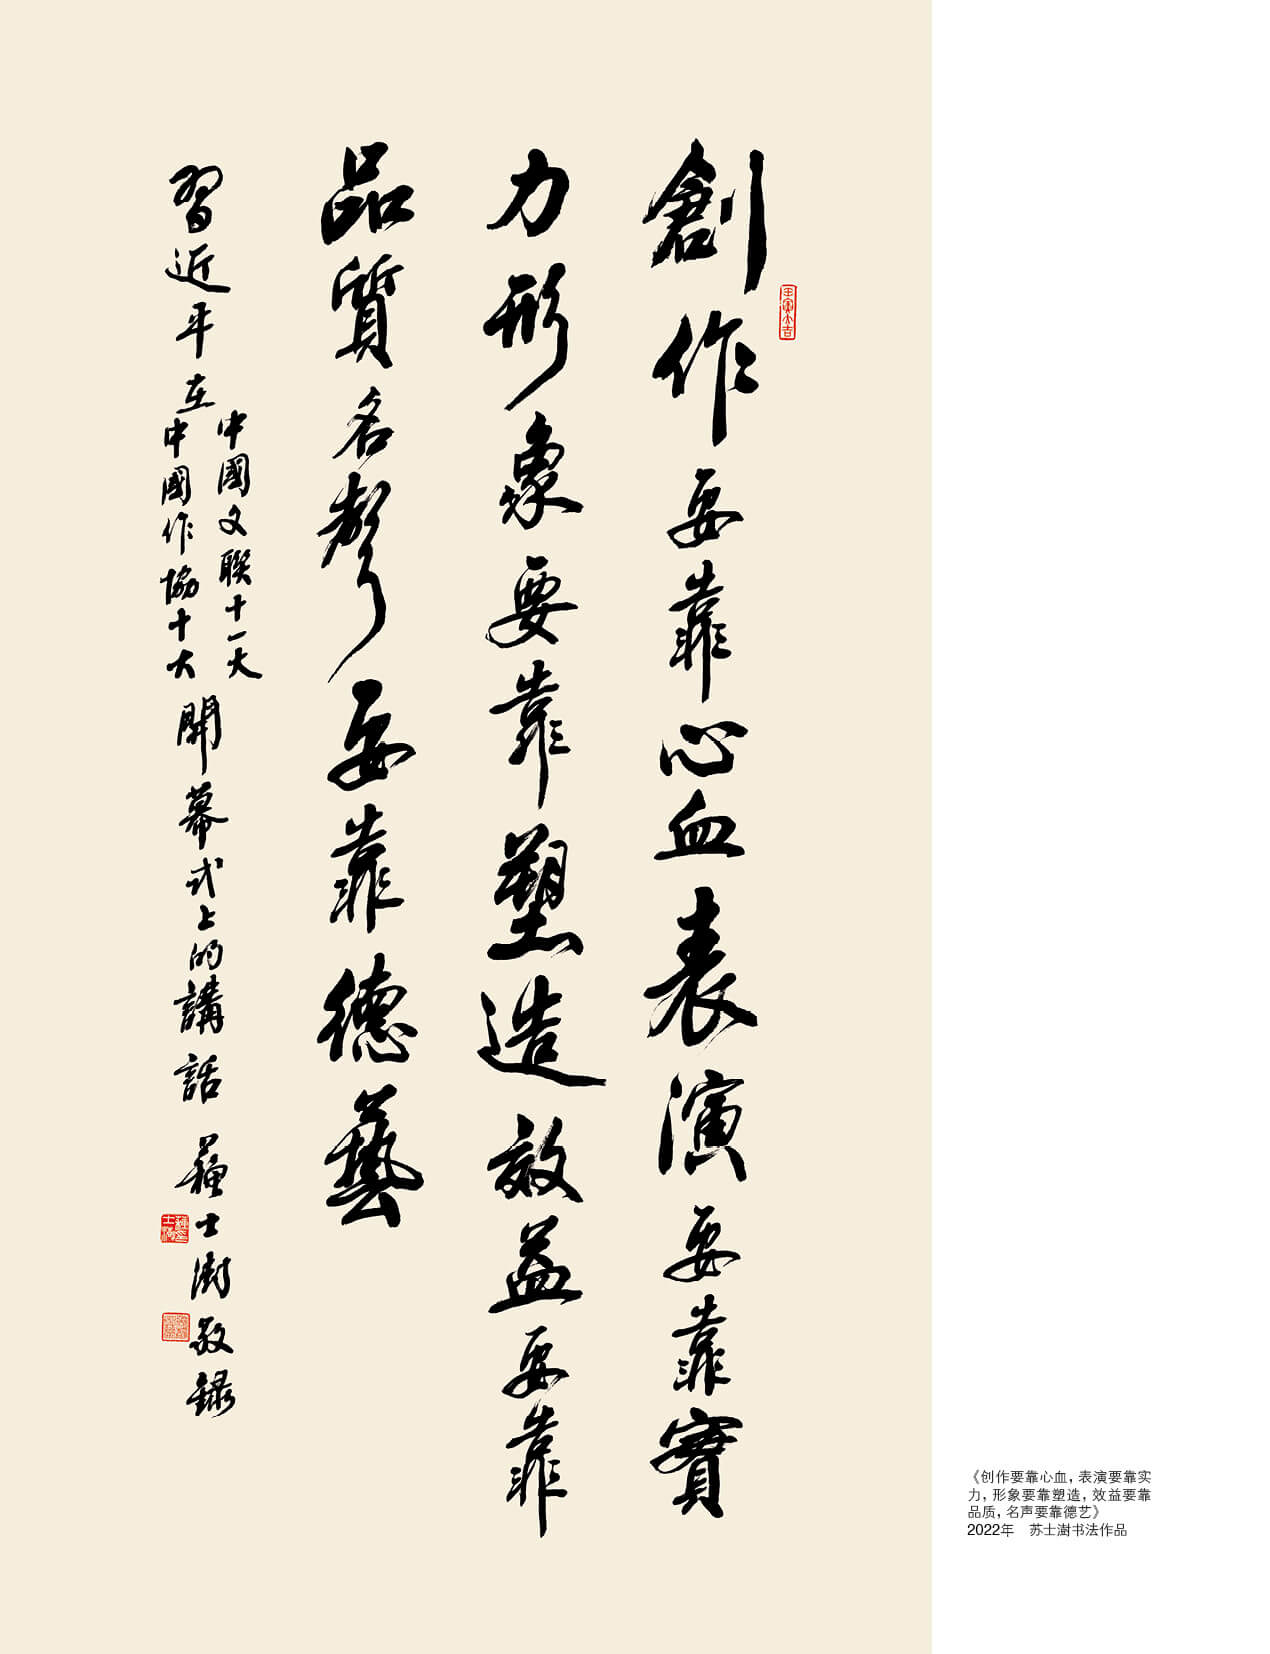 創作要靠心血表演要靠實
力形象要靠塑造效益要靠
品質名聲要靠德藝
習近平在中國文聯十一大中國作協十大開幕式上的講話 蘇士澍敬錄
壬寅大吉
《创作要靠心血，表演要靠实
力，形象要靠塑造，效益要靠
品质，名声要靠德艺》
2022年　苏士澍书法作品